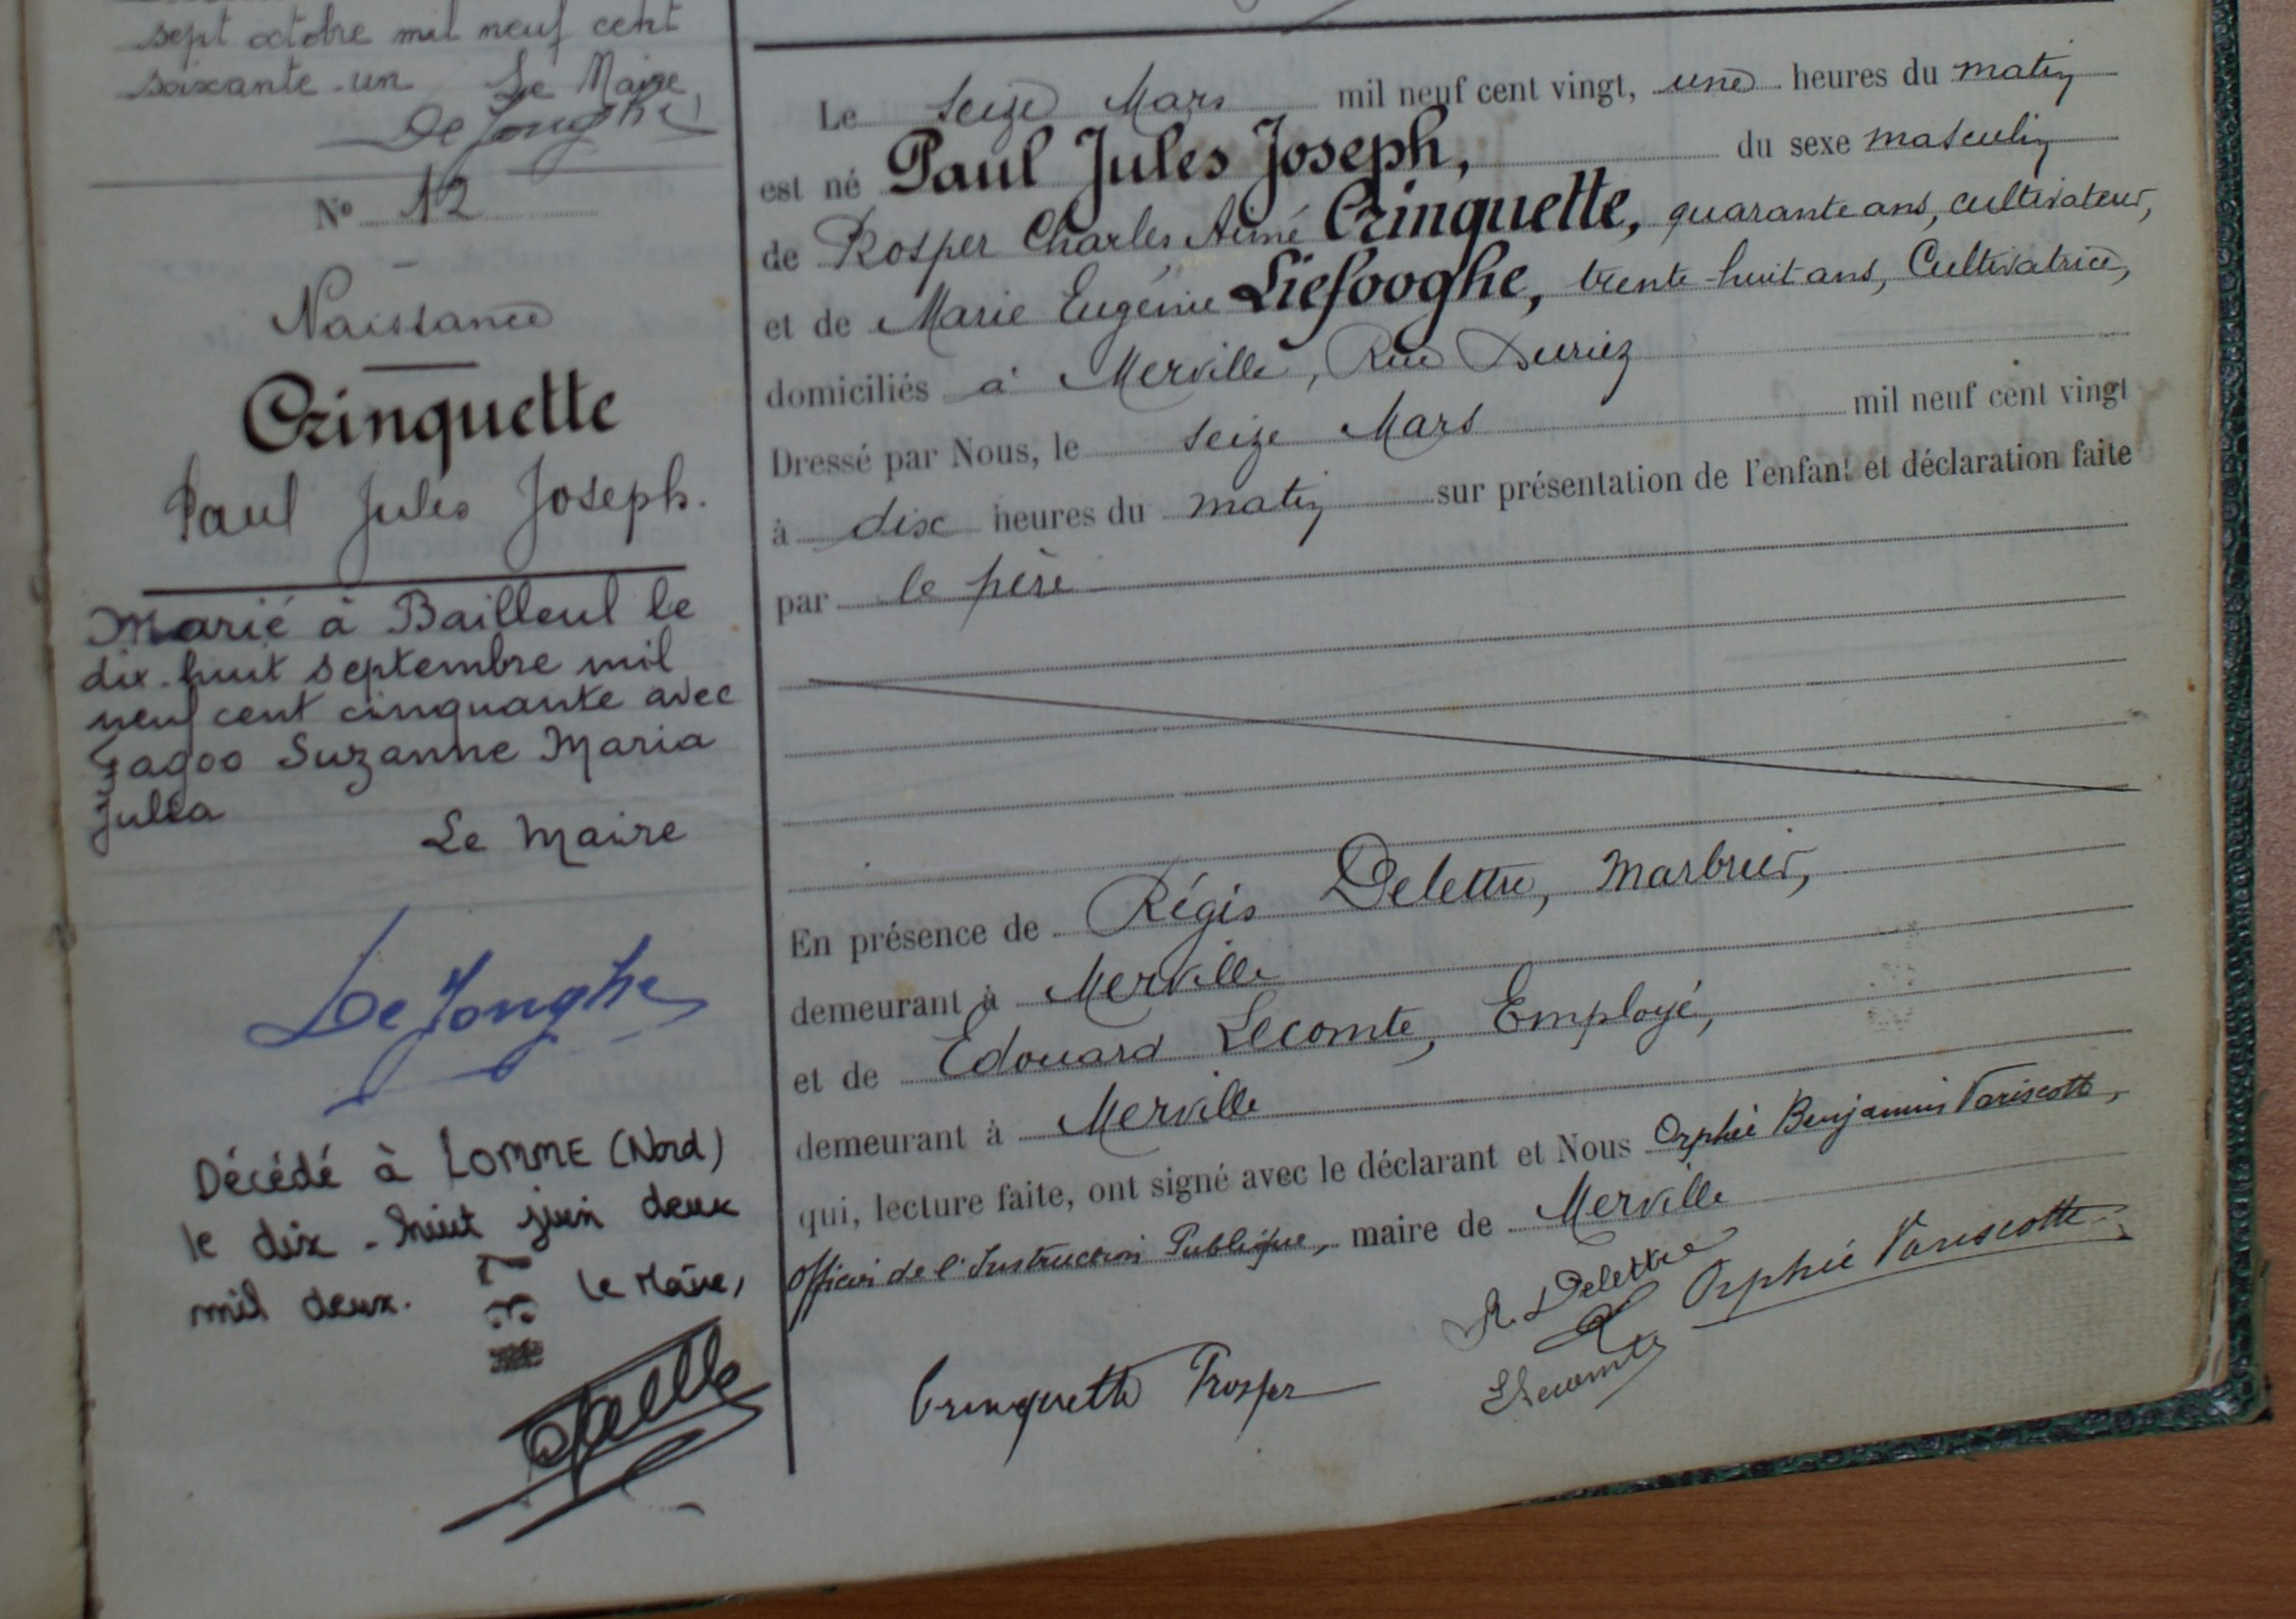 sept octobre mil neuf cent
soixante-un Le Maire
De Jonghe
N° 12
Naissance
Crinquette
Paul Jules Joseph.
Marié à Bailleul le
dix-huit septembre mil
neuf cent cinquante avec
Fagoo Suzanne Maria
Julia
Le Maire
De Jonghe
Décédé à LOMME (Nord)
le dix-huit juin deux
mil deux. Le Maire,
Le Seize Mars mil neuf cent vingt, une heures du matin
est né Paul Jules Joseph, du sexe masculin
de Prosper Charles Aimé Crinquette, quarante ans, cultivateur,
et de Marie Eugénie Liefooghe, trente-huit ans, Cultivatrice,
domiciliés à Merville, Rue Duriez
Dressé par Nous, le seize Mars mil neuf cent vingt
à dix heures du matin sur présentation de l'enfant et déclaration faite
par le père
En présence de Régis Delettre, Marbrier,
demeurant à Merville
et de Edouard Lecomte, Employé,
demeurant à Merville
qui, lecture faite, ont signé avec le déclarant et Nous Orphée Benjamin Variscotte,
Officier de l'Instruction Publique, maire de Merville
R. Delettre Orphée Variscotte
Crinquette Prosper ELecomte